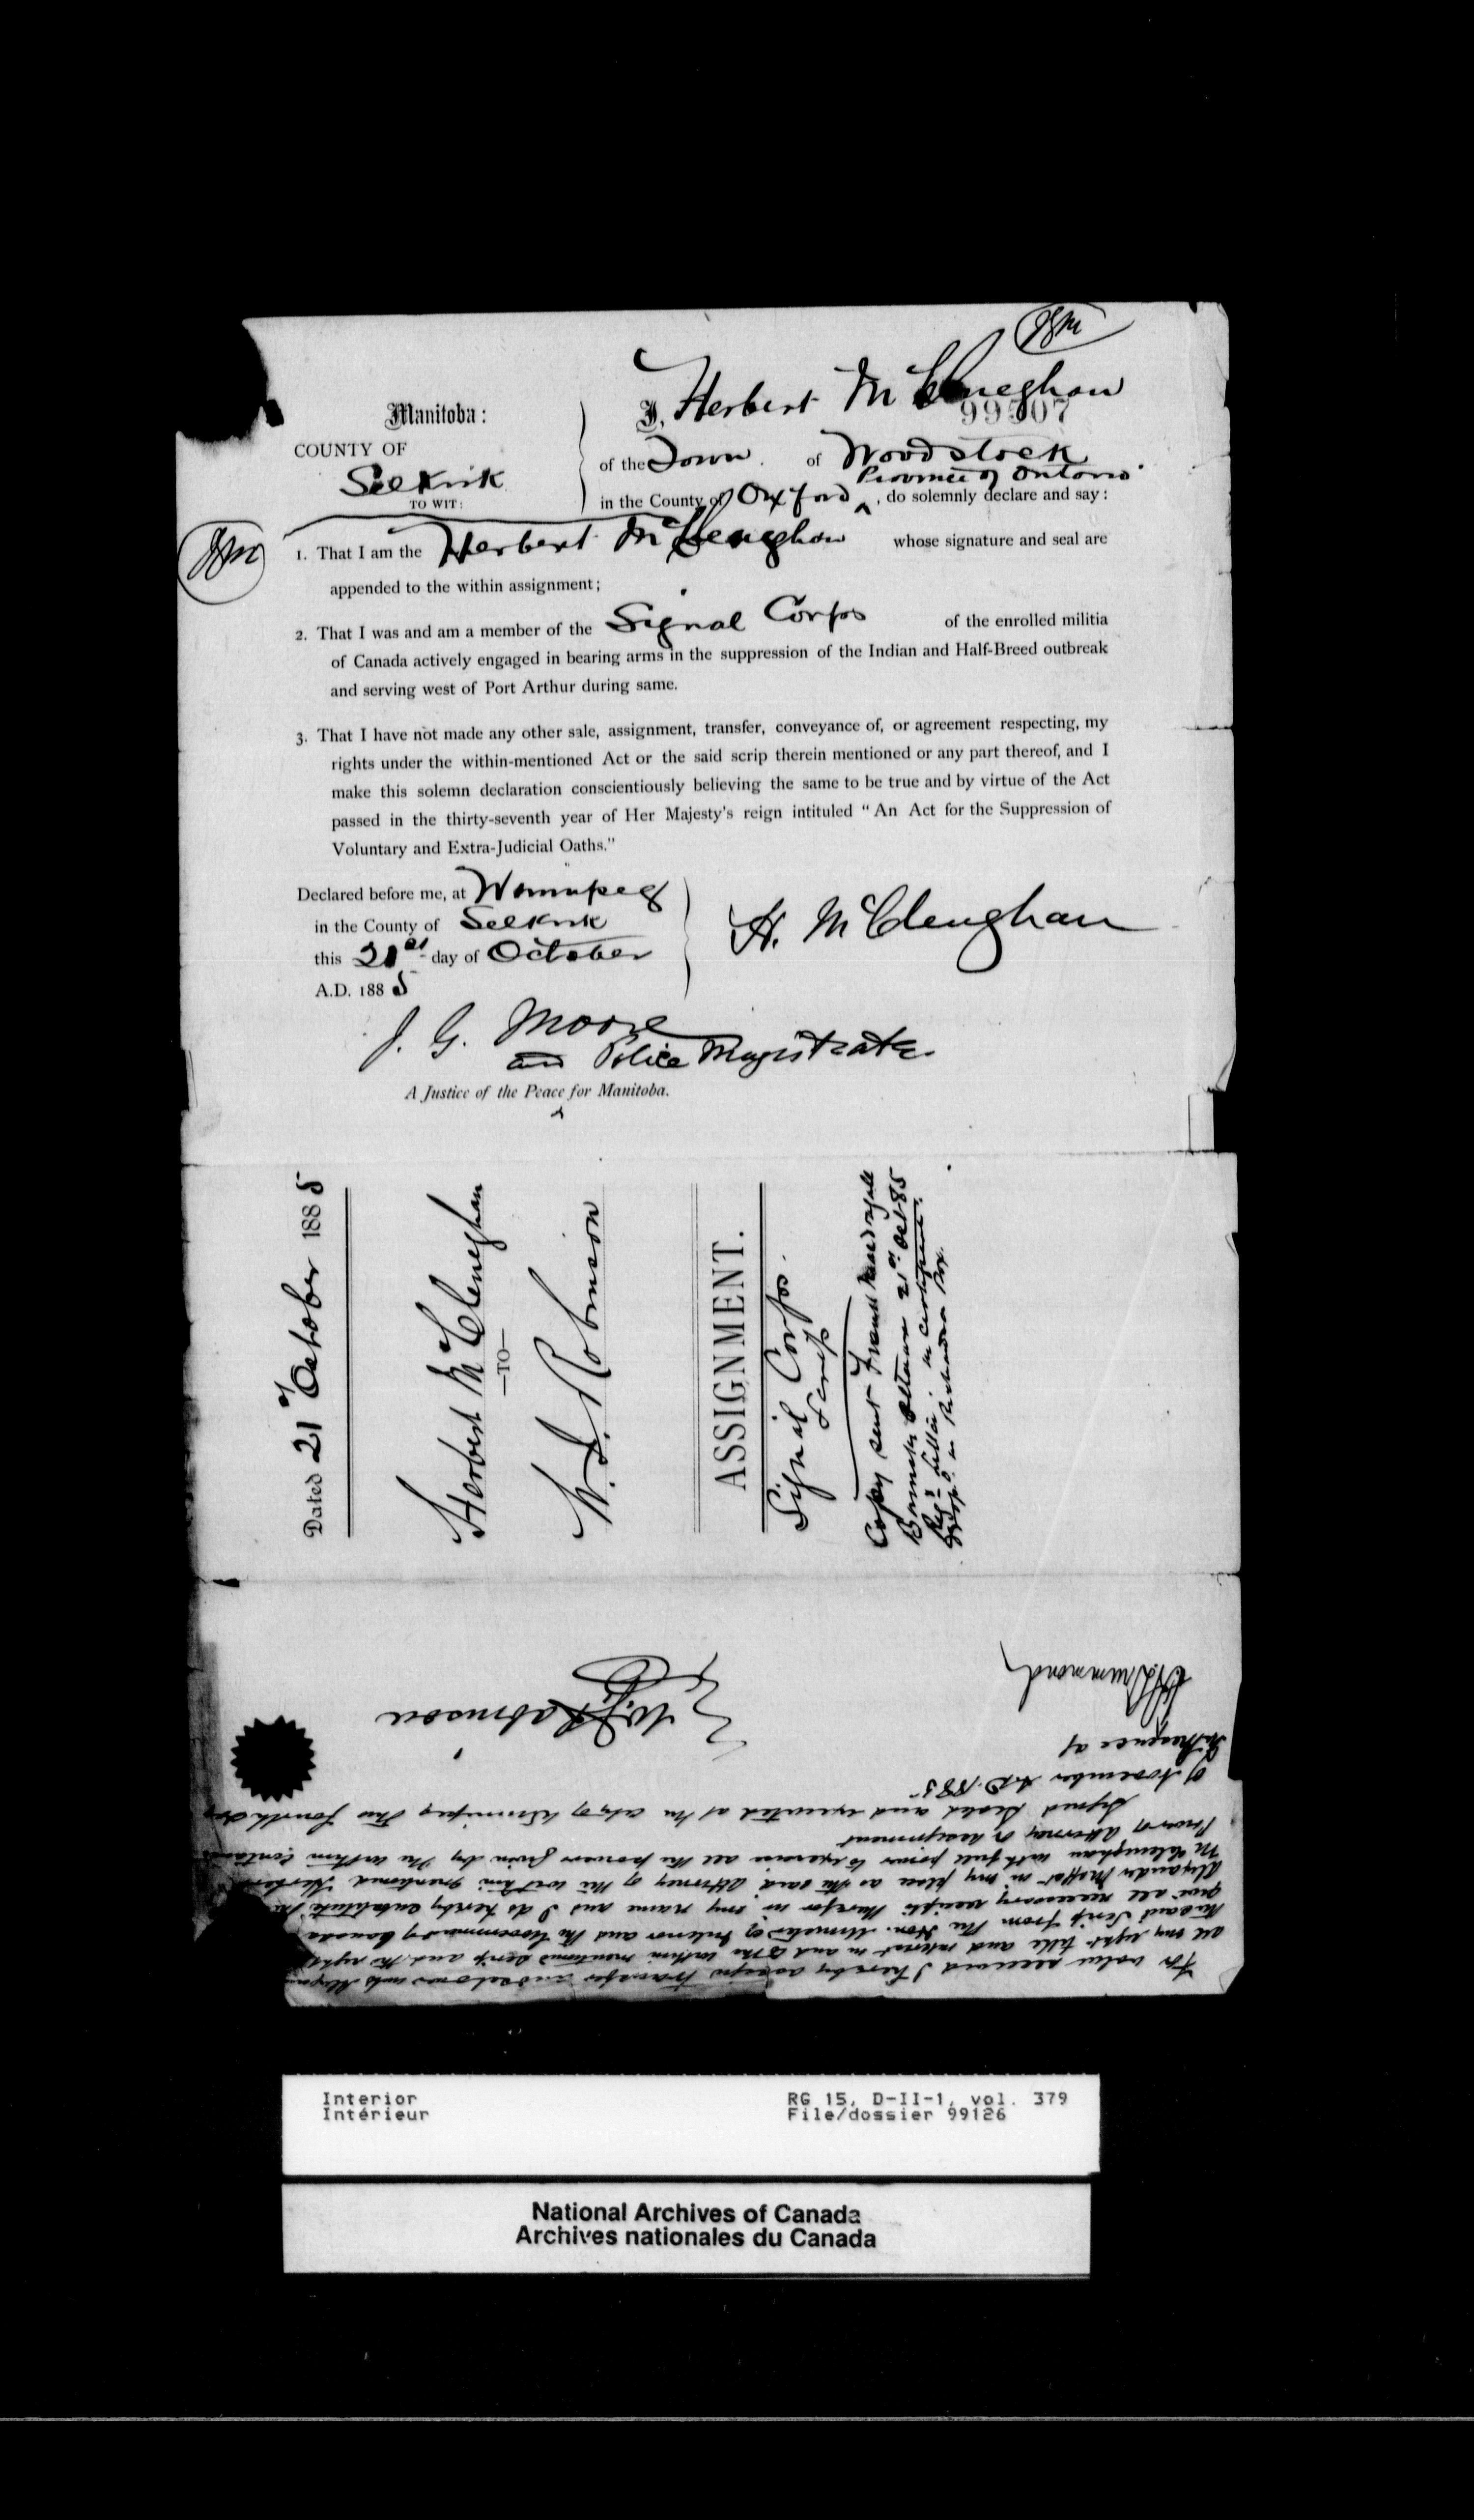 JGM
Manitoba:
COUNTY OF
Selkirk
TO WIT:
I, Herbert McClenaghan
99507
of the Town of Woodstock
Province of Ontario
in the County of Oxford ‸, do solemnly declare and say:
JGM
1. That I am the Herbert McClenaghan whose signature and seal are
appended to the within assignment;
2. That I was and am a member of the Signal Corps of the enrolled militia
of Canada actively engaged in bearing arms in the suppression of the Indian and Half-Breed outbreak
and serving west of Port Arthur during same.
3. That I have not made any other sale, assignment, transfer, conveyance of, or agreement respecting, my
rights under the within-mentioned Act or the said scrip therein mentioned or any part thereof, and I
make this solemn declaration conscientiously believing the same to be true and by virtue of the Act
passed in the thirty-seventh year of Her Majesty's reign intituled "An Act for the Suppression of
Voluntary and Extra-Judicial Oaths."
Declared before me, at Winnipeg
in the County of Selkirk
this 21st day of October
A.D. 1885
H. McClenghan
J. G. Moore
and Police Magistrate
A Justice of the Peace for Manitoba.
Dated 21st October 1885
Herbert McClenghan
—TO—
W. J. Robinson
ASSIGNMENT.
Signal Corps.
Scrip
Copy sent
Barrister Ottawa 21st Oct 85
Regd letter
For value received I hereby assign transfer and set over unto
all my right title and interest in and to the within mentioned scrip and the right
the said Scrip from the Hon. Minister of Interior and the Government of Canada
give all necessary receipts therefor in my name and I do hereby substitute the
Alexander Moffat in my place as the said attorney of the within mentioned Herbert
McClenghan with full power to exercise all the powers given by the within
Power of attorney or assignment
Signed Sealed and executed at the city of Winnipeg this fourth day
of November A.D. 1885
In Presence of
Drummond
W. J. Robinson
Interior
Intérieur
RG 15, D-II-1, vol. 379
File/dossier 99126
National Archives of Canada
Archives nationales du Canada